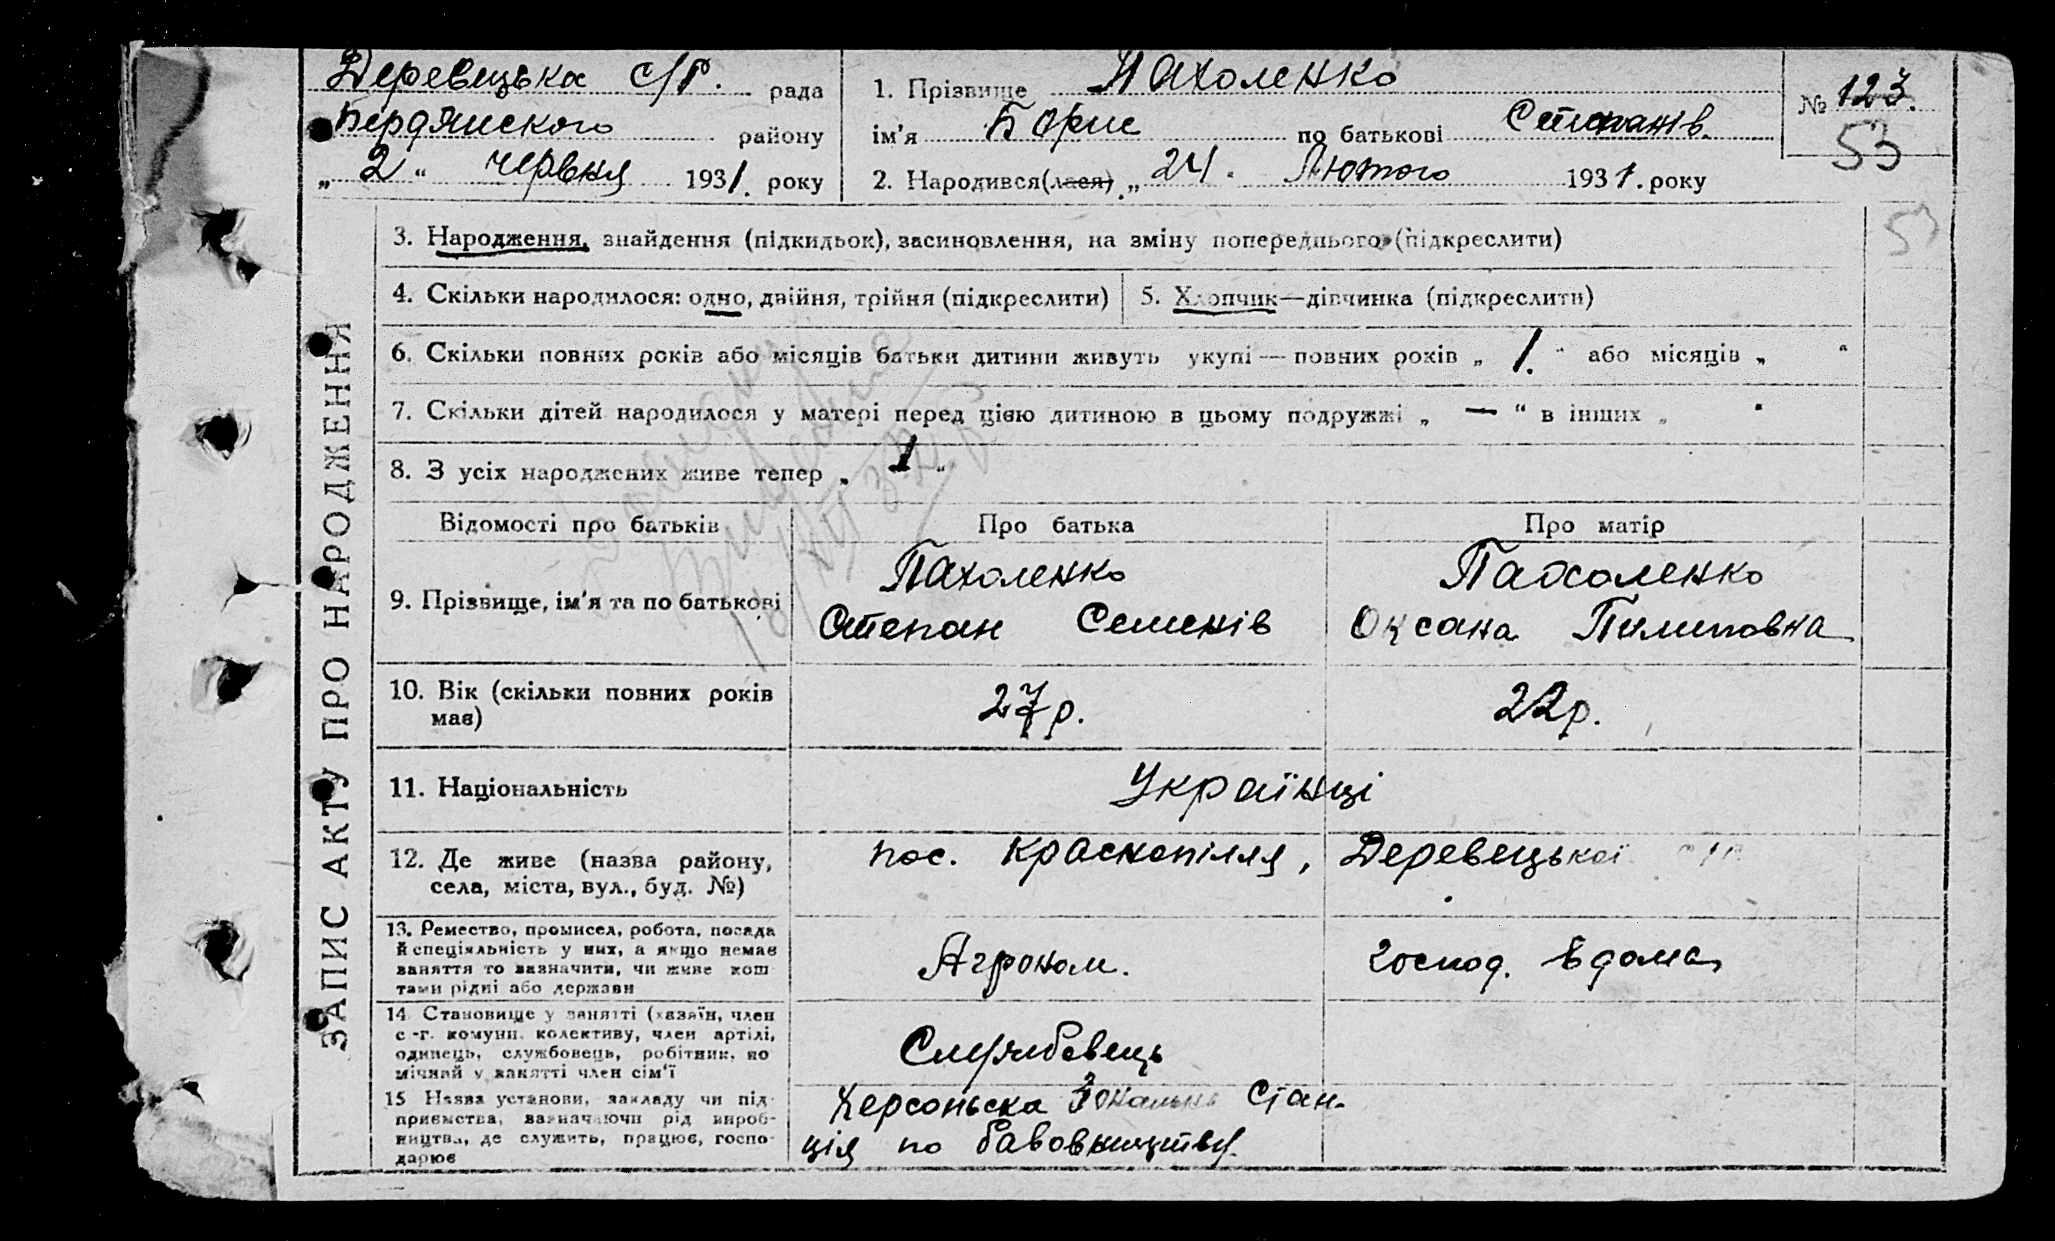 Деревецька с/р. рада
Бердянського району
„ 2 “ червня 1931. року
1. Прізвище Пахоленко
ім'я Борис по батькові Степанів.
2. Народився(лася) „ 24. Лютого 1931. року
№ 123.
53
53
ЗАПИС АКТУ ПРО НАРОДЖЕННЯ
3. Народження, знайдення (підкидьок), засиновлення, на зміну попереднього (підкреслити)
4. Скільки народилося: одно, двійня, трійня (підкреслити)
5. Хлопчик—дівчинка (підкреслити)
6. Скільки повних років або місяців батьки дитини живуть укупі — повних років „ 1. “ або місяців „ “
7. Скільки дітей народилося у матері перед цією дитиною в цьому подружжі „ — “ в інших „ “
8. З усіх народжених живе тепер „ 1 “
Відомості про батьків Про батька Про матір
9. Прізвище, ім'я та по батькові
Пахоленко
Степан Семенів
Пахоленко
Оксана Пилиповна
10. Вік (скільки повних років
має)
27р.
22р.
11. Національність
Українці
12. Де живе (назва району,
села, міста, вул., буд. №)
пос. Краснопілля, Деревецької
13. Ремество, промисел, робота, посада
й спеціяльність у них, а якщо немає
заняття то зазначити, чи живе кош
тами рідні або держави
Агроном.
господ. вдома
14. Становище у занятті (хазяїн, член
с.-г. комуни, колективу, член артілі,
одинець, службовець, робітник, по
мічний у занятті член сім'ї
Службовець
15 Назва установи, закладу чи під-
приємства, зазначаючи рід вироб-
ництва, де служить, працює, госпо-
дарює
Херсонська Зональна Стан-
ція по бавовництву.